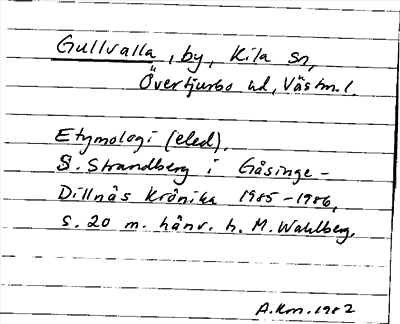 Gullvalla, by, Kila sn,
Övertjurbo hd, Västm.l.
Etymologi (eled).
S. Strandberg i Gåsinge-
Dillnäs Krönika 1985-1986,
s. 20 m. hänv. h. M. Wahlberg.
A.Km. 1982